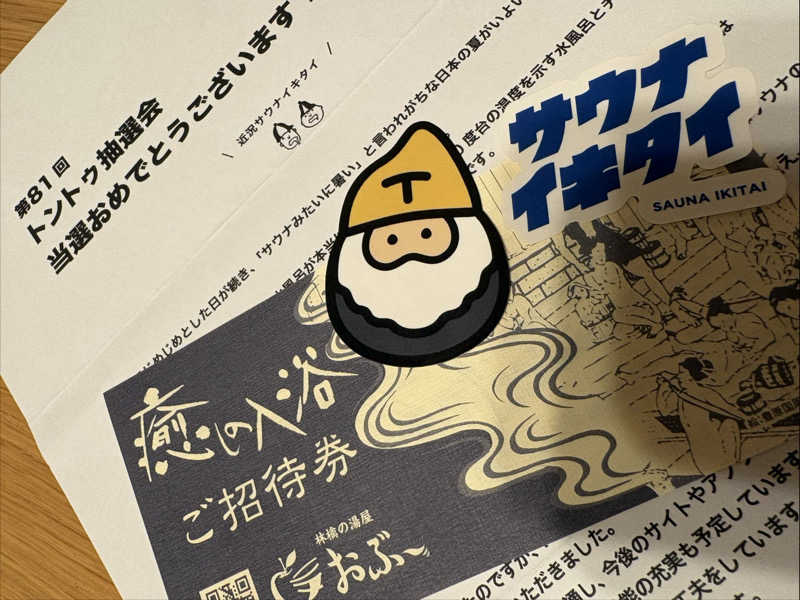 第81回
トントゥ抽選会
当選おめでとうございます
\ 近況サウナイキタイ /
じめじめとした日が続き、「サウナみたいに暑い」と言われがちな日本の夏がいよい
度台の温度を示す水風呂と
です。
風呂が本当
サウナ
イキタイ
SAUNA IKITAI
T
癒の入浴
ご招待券
林檎の湯屋
おぶ~
たのですが、
いただきました。
し、今後のサイトやア
能の充実も予定しています
工夫をしています